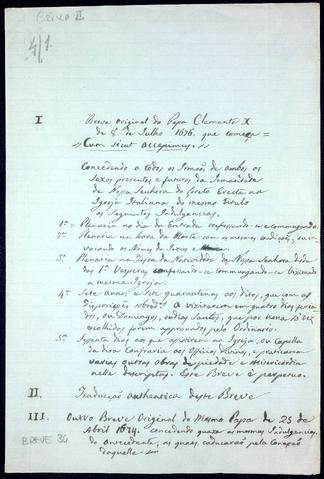 BRIXO II
4/1.
I Breve original do Papa Clemente X
de 5 de Julho 1676. que começa =
,, Cum sicut accepimus.,,
Concedendo a todos os Irmãos de ambos os
sexos presentes e futuros da Irmandade
de Nossa Senhora do Loreto Erecta na
Igreja Italiana do mesmo Titulo
as seguintes Indulgencias.
1ª = Plenaria no dia da Entrada confessando-se e commungando.
2ª Plenaria na hora da Morte com as mesmas condições, ou in-
vocando os Nomes de Jesus e
3ª Plenaria na Festa da Natividade de Nossa Senhora desde
das 1ªˢ Vesperas confessando-se commungando-se visitando
a mesma Igreja.
4ª Sete annos, e sete quarentenas aos ditos, que com as
disposições a visitarem em quatro dias feria-
dos, ou Domingos, ou dias Santos, que por nós
escolhidos forem approvados pelo Ordinario.
5ª Sessenta dias aos que assistirem na Igreja, ou Capella
da dita Confraria aos Officios Divinos, e praticarem
varias outras obras de piedade e Misericordia
nelle descriptas. Este Breve é perpetuo.
II. Tradução authentica deste Breve
III. Outro Breve Original do Mesmo Papa de 25 de
Abril 1674. concedendo quase as mesmas Indulgencias
do antecedente, as quaes caducarão pela Concessão
daquelle
BREVE 34